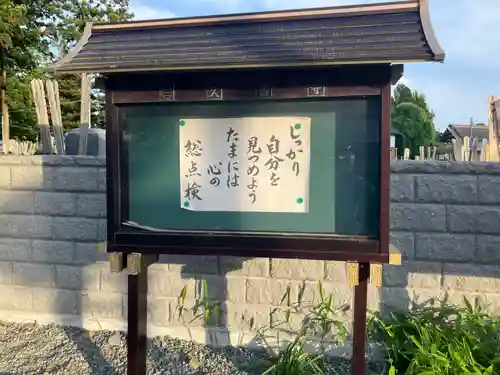 しっかり
自分を
見つめよう
たまには
心の
総点検